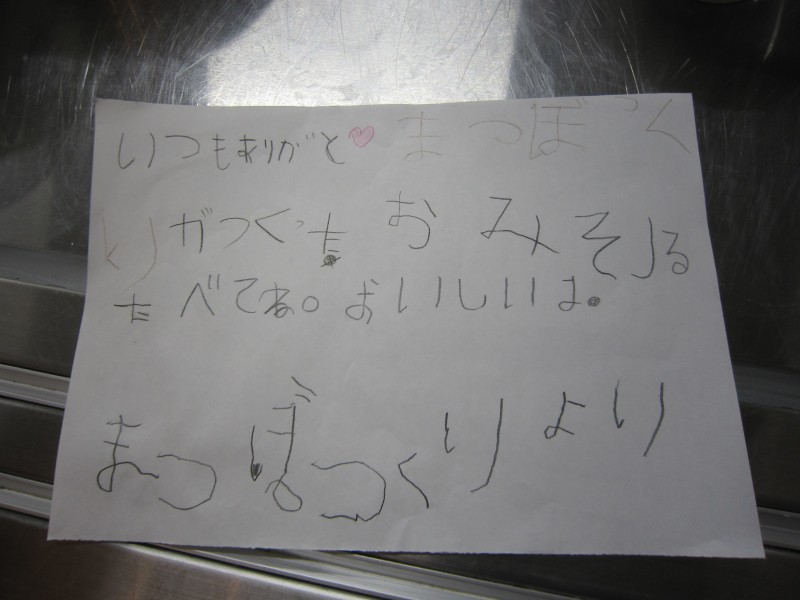 いつもありがと♥まつぼっく
りがつくった おみそしる
たべてね。おいしいよ。
まつぼっくりより